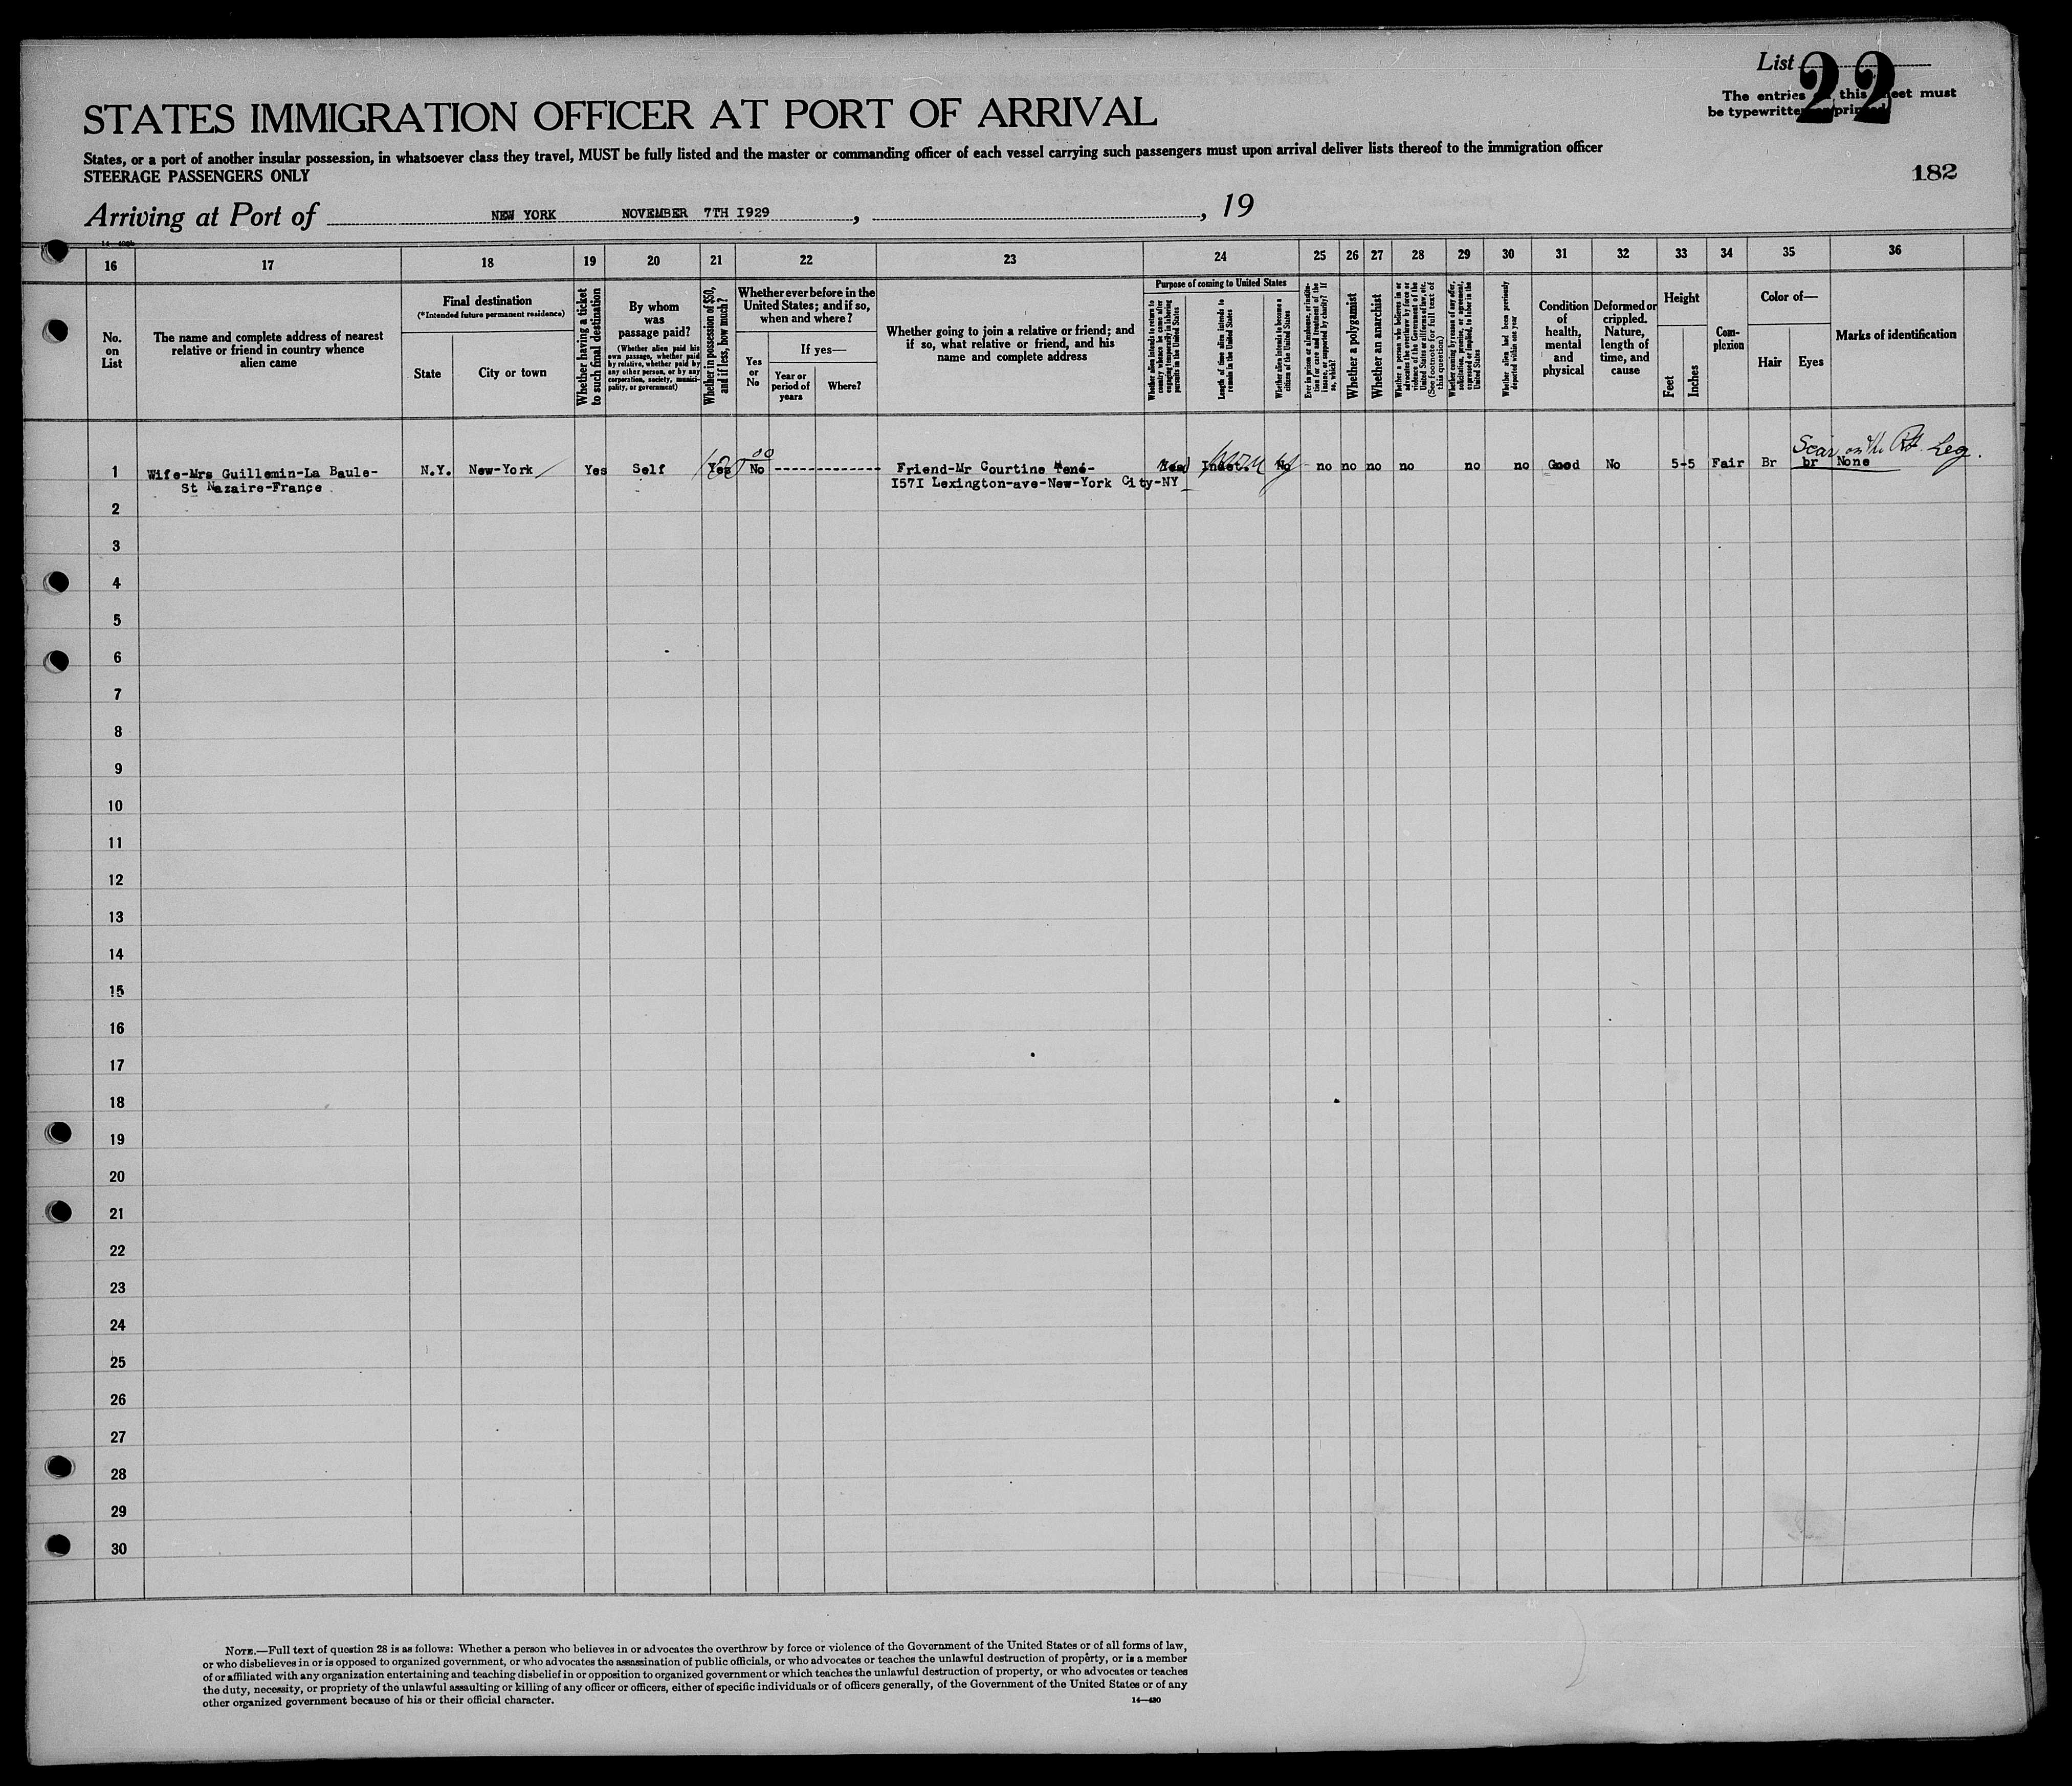 List 22
The entries this sheet must
be typewritten or printed
STATES IMMIGRATION OFFICER AT PORT OF ARRIVAL
States, or a port of another insular possession, in whatsoever class they travel, MUST be fully listed and the master or commanding officer of each vessel carrying such passengers must upon arrival deliver lists thereof to the immigration officer
STEERAGE PASSENGERS ONLY
182
Arriving at Port of NEW YORK NOVEMBER 7TH I929 , , 19
16 17 18 19 20 21 22 23 24 25 26 27 28 29 30 31 32 33 34 35 36
No.
on
List
The name and complete address of nearest
relative or friend in country whence
alien came
Final destination
(*Intended future permanent residence)
State
City or town
Whether having a ticket
to such final destination
By whom
was
passage paid?
(Whether alien paid his
own passage, whether paid
by relative, whether paid by
any other person, or by any
corporation, society, munici-
pality, or government)
Whether in possession of $50,
and if less, how much?
Whether ever before in the
United States; and if so,
when and where?
Yes
or
No
If yes—
Year or
period of
years
Where?
Whether going to join a relative or friend; and
if so, what relative or friend, and his
name and complete address
Purpose of coming to United States
Whether alien intends to return to
country whence he came after
engaging temporarily in laboring
pursuits in the United States
Length of time alien intends to
remain in the United States
Whether alien intends to become a
citizen of the United States
Ever in prison or almshouse, or institu-
tion for care and treatment of the
insane, or supported by charity? If
so, which?
Whether a polygamist
Whether an anarchist
Whether a person who believes in or
advocates the overthrow by force or
violence of the Government of the
United States or all forms of law, etc.
(See footnote for full text of
this question)
Whether coming by reason of any offer,
solicitation, promise, or agreement,
expressed or implied, to labor in the
United States
Whether alien had been previously
deported within one year
Condition
of
health,
mental
and
physical
Deformed or
crippled.
Nature,
length of
time, and
cause
Height
Feet
Inches
Com-
plexion
Color of—
Hair
Eyes
Marks of identification
Scar on the Rt Leg.
1 Wife-Mrs Guillemin-La Baule- N.Y. New-York Yes Self Yes No Friend-Mr Courtine René- Indet. No no no no no no no Good No 5-5 Fair Br br None
St Nazaire-France I57I Lexington-ave-New-York City-NY
2
3
4
5
6
7
8
9
10
11
12
13
14
15
16
17
18
19
20
21
22
23
24
25
26
27
28
29
30
NOTE.—Full text of question 28 is as follows: Whether a person who believes in or advocates the overthrow by force or violence of the Government of the United States or of all forms of law,
or who disbelieves in or is opposed to organized government, or who advocates the assassination of public officials, or who advocates or teaches the unlawful destruction of property, or is a member
of or affiliated with any organization entertaining and teaching disbelief in or opposition to organized government or which teaches the unlawful destruction of property, or who advocates or teaches
the duty, necessity, or propriety of the unlawful assaulting or killing of any officer or officers, either of specific individuals or of officers generally, of the Government of the United States or of any
other organized government because of his or their official character.
14—430